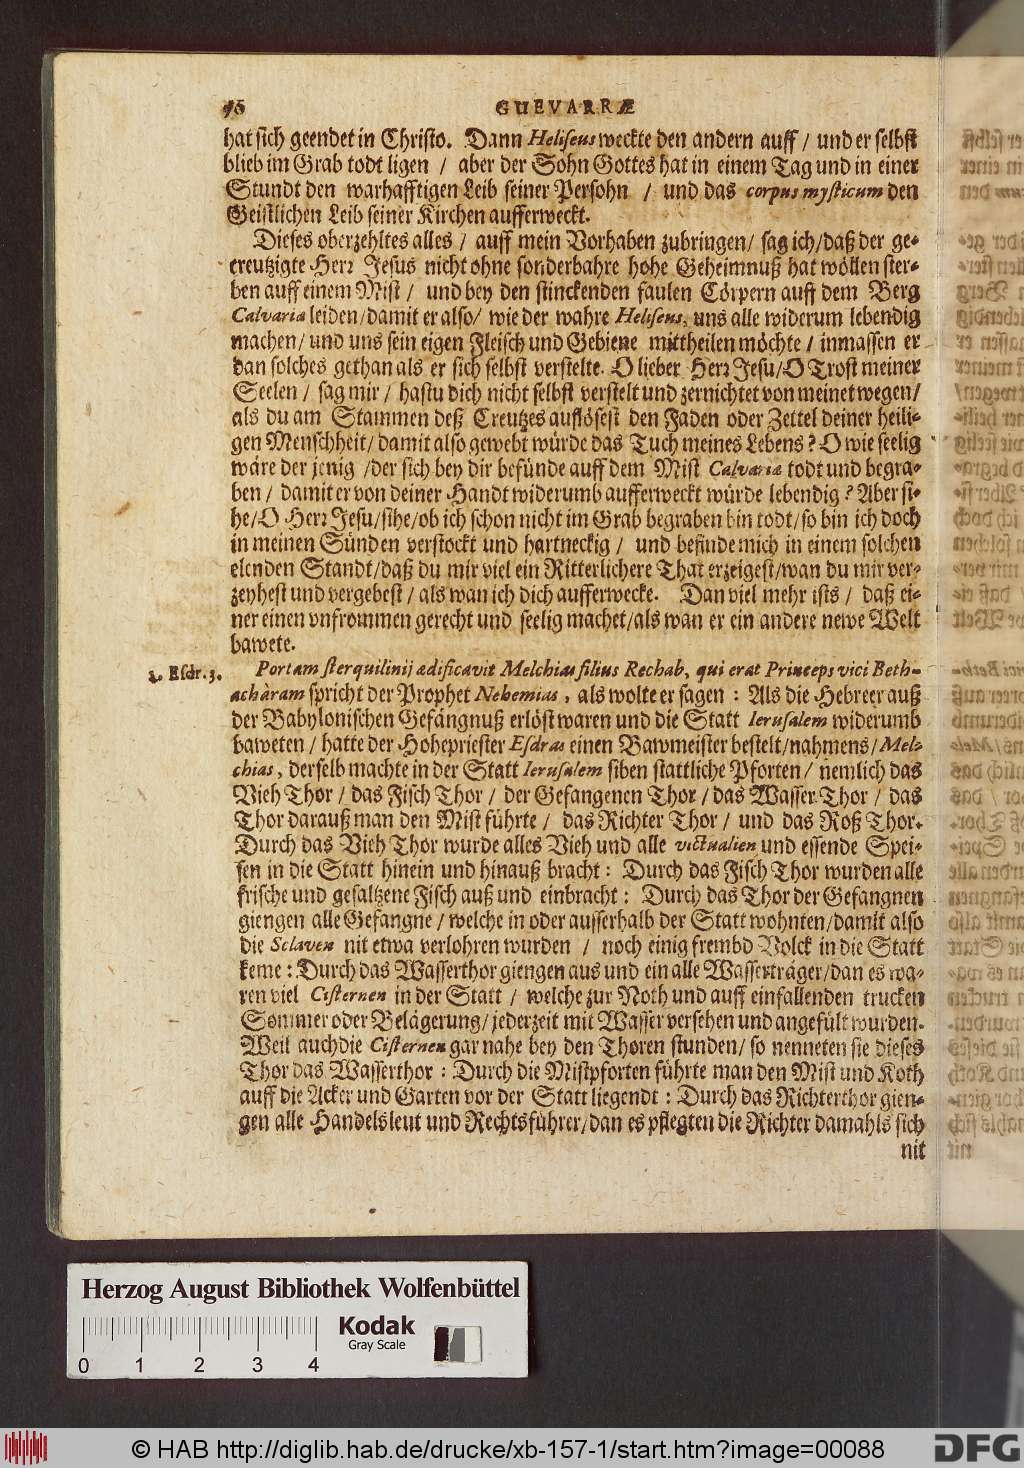 GUEVARRÆ
hat sich geendet in Christo. Dann Heliseus weckte den andern auff / und er selbst
blieb im Grab todt ligen / aber der Sohn Gottes hat in einem Tag und in einer
Stundt den warhafftigen Leib seiner Persohn / und das corpus mysticum den
Geistlichen Leib seiner Kirchen aufferweckt.
Dieses oberzehltes alles / auff mein Vorhaben zubringen / sag ich / daß der ge-
creutzigte Herr Jesus nicht ohne sonderbahre hohe Geheimnuß hat wöllen ster-
ben auff einem Mist / und bey den stinckenden faulen Cörpern auff dem Berg
Calvaria leiden / damit er also / wie der wahre Heliseus, uns alle widerum lebendig
machen / und uns sein eigen Fleisch und Gebiene mittheilen möchte / inmassen er
dan solches gethan als er sich selbst verstelte. O lieber Herr Jesu / O Trost meiner
Seelen / sag mir / hastu dich nicht selbst verstelt und zernichtet von meinet wegen /
als du am Stammen deß Creutzes auflösest den Faden oder Zettel deiner heili-
gen Menschheit / damit also gewebt würde das Tuch meines Lebens? O wie seelig
wäre der jenig / der sich bey dir befünde auff dem Mist Calvaria todt und begra-
ben / damit er von deiner Handt widerumb aufferweckt würde lebendig? Aber si-
he / O Herr Jesu / sihe / ob ich schon nicht im Grab begraben bin todt / so bin ich doch
in meinen Sünden verstockt und hartneckig / und befinde mich in einem solchen
elenden Standt / daß du mir viel ein Ritterlichere That erzeigest / wan du mir ver-
zeyhest und vergebest / als wan ich dich aufferwecke. Dan viel mehr ists / daß ei-
ner einen vnfrommen gerecht und seelig machet / als wan er ein andere newe Welt
bawete.
2. Esdr. 3. Portam sterquilinij ædificavit Melchias filius Rechab, qui erat Princeps vici Beth-
acharam spricht der Prophet Nehemias, als wolte er sagen: Als die Hebreer auß
der Babylonischen Gefängnuß erlöst waren und die Statt Ierusalem widerumb
baweten / hatte der Hohepriester Esdras einen Bawmeister bestelt / nahmens / Mel-
chias, derselb machte in der Statt Ierusalem siben stattliche Pforten / nemlich das
Vieh Thor / das Fisch Thor / der Gefangenen Thor / das Wasser Thor / das
Thor darauß man den Mist führte / das Richter Thor / und das Roß Thor.
Durch das Vieh Thor wurde alles Vieh und alle victualien und essende Spei-
sen in die Statt hinein und hinauß bracht: Durch das Fisch Thor wurden alle
frische und gesaltzene Fisch auß und einbracht: Durch das Thor der Gefangnen
giengen alle Gefangne / welche in oder ausserhalb der Statt wohnten / damit also
die Sclaven nit etwa verlohren wurden / noch einig frembd Volck in die Statt
keme: Durch das Wasserthor giengen aus und ein alle Wasserträger / dan es wa-
ren viel Cisternen in der Statt / welche zur Noth und auff einfallenden trucken
Sommer oder Belägerung / jederzeit mit Wasser versehen und angefült wurden.
Weil auch die Cisternen gar nahe bey den Thoren stunden / so nenneten sie dieses
Thor das Wasserthor: Durch die Mistpforten führte man den Mist und Koth
auff die Acker und Garten vor der Statt liegendt: Durch das Richterthor gien-
gen alle Handelsleut und Rechtsführer / dan es pflegten die Richter damahls sich
nit
Herzog August Bibliothek Wolfenbüttel
Kodak
Gray Scale
0 1 2 3 4
© HAB http://diglib.hab.de/drucke/xb-157-1/start.htm?image=00088
DFG